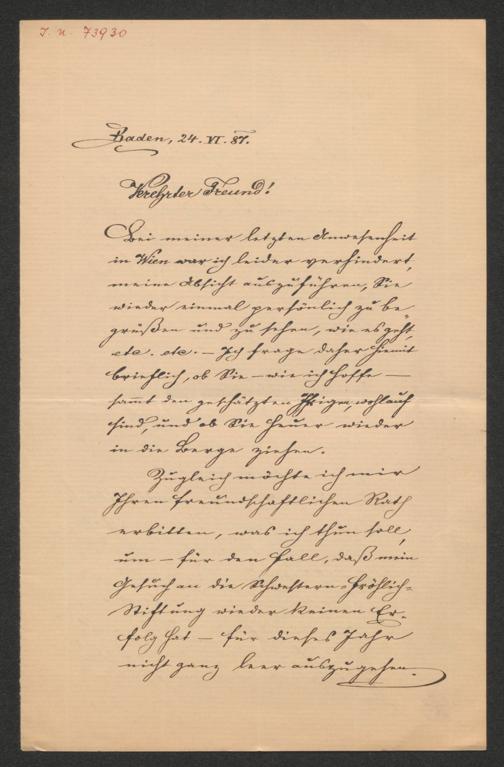 J. N. 73930
Baden, 24. VI. 87.
Verehrter Freund!
Bei meiner letzten Anwesenheit
in Wien war ich leider verhindert,
meine Absicht auszuführen, Sie
wieder einmal persönlich zu be-
grüßen und zu sehen, wie es geht,
etc. etc. – Ich frage daher hiemit
brieflich, ob Sie – wie ich hoffe –
sammt den geschätzten Ihrigen, wohlauf
sind, und ob Sie heuer wieder
in die Berge ziehen.
Zugleich möchte ich mir
Ihren freundschaftlichen Rath
erbitten, was ich thun soll,
um – für den Fall, daß mein
Gesuch an die Schwestern-Fröhlich-
Stiftung wieder keinen Er-
folg hat – für dieses Jahr
nicht ganz leer auszugehen.